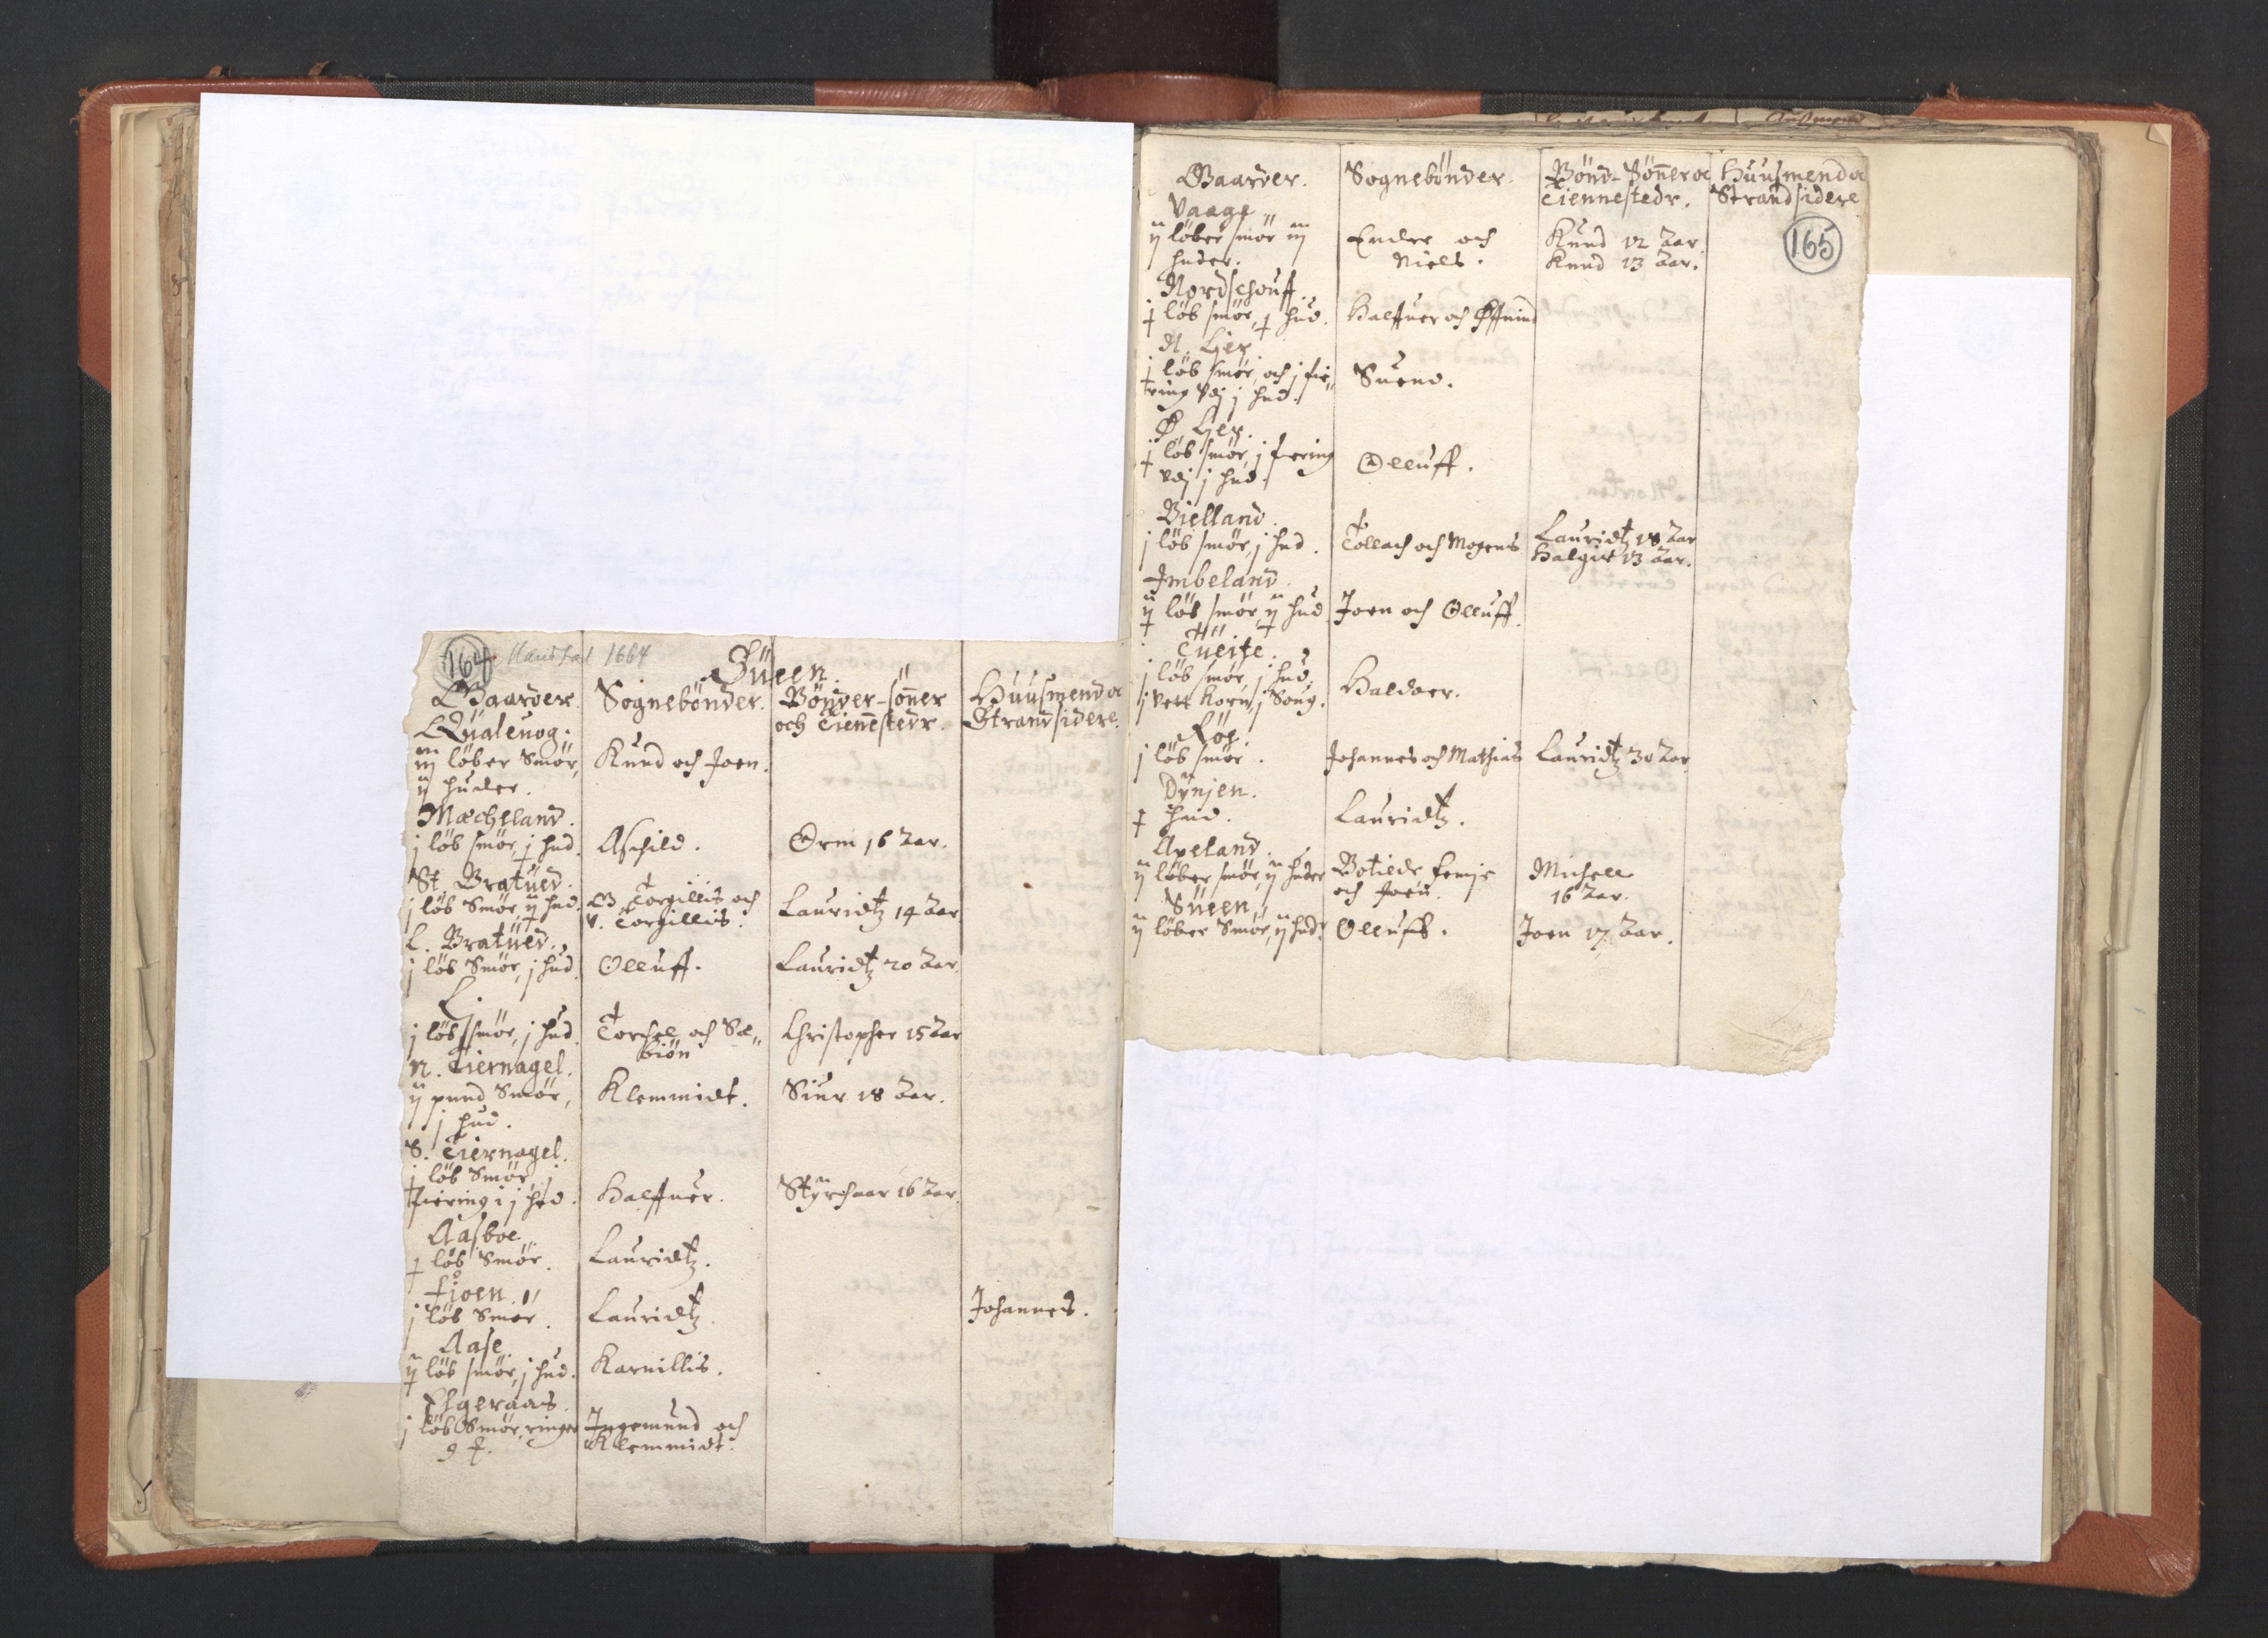 164 Manntal 1664
Süeen.
Gaarder. Sognebönder. Bönder-söner och Tiennestedr. Huusmend oc Strandsidere.
Qüaleuog.
iij löber Smör, ij huder. Knud och Joen.
Mæcheland.
j löb smör, j hud. Aschild. Orm 16 Aar.
St. Bratüed.
j löb Smör, ij hud. G. Torgillis och V. Torgillis. Lauridtz 14 Aar
L. Bratüed.
j löb Smör, j hud. Olluff. Lauridtz 20 Aar.
Lj
j löb smör, j hud. Torchel och Sæbiön Christopher 15 Aar
N. Tiernagel.
ij pund Smör, j hud. Klemmidt. Siur 18 Aar.
S. Tiernagel.
j löb Smör, j fiering i j hud. Halffuer. Styrchaar 16 Aar.
Aasboe
j löb Smör. Lauridtz.
Fioen.
j löb Smör. Lauridtz. Johannes.
Aase.
ij löb smör, j hud. Karnillis.
Elgeraas.
j löb Smör, ringer 9 Ingemund och Klemmidt.
Gaarder. Sognebönder. Bönd-Sönner oc Tiennestedr. Huusmend oc Strandsidere
165
Vaage
ij löber smör iij huder. Endre och Niels. Knud 12 Aar. Knud 13 Aar.
Nordschouff.
j löb smör, j hud. Halffuer och Öffuind
N. Lier
j löb smör, och j fiering udj j hud. Suend.
Ø. Lier.
j löb smör, j fiering udj j hud. Olluff.
Bielland.
j löb smör, j hud. Tollach och Mogens Lauridtz 18 Aar Halgier 13 Aar.
Imbeland.
ij löb smör, ij hud Joen och Olluff.
Tüeite.
j löb smör, j hud, j vett Korn, j Soug. Haldoer.
Röx.
j löb smör. Johannes och Mathias Lauridtz 30 Aar
Dynjen.
j hud. Lauridtz.
Axeland.
ij löber smör, ij huder Botilde Ennje och Joen. Michell 16 Aar.
Süeen
ij löber Smör, ij hud. Olluff. Joen 17 Aar.